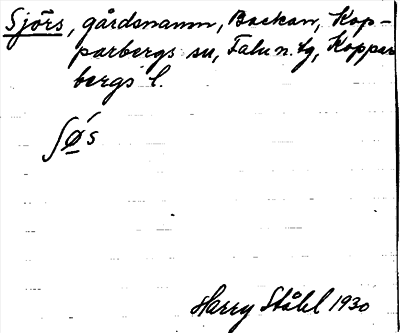 Sjörs, gårdsnamn, Backan, Kop-
parbergs sn, Falu n. tg, Koppar
bergs l.
ʃǿ̠s
Harry Ståhl 1930